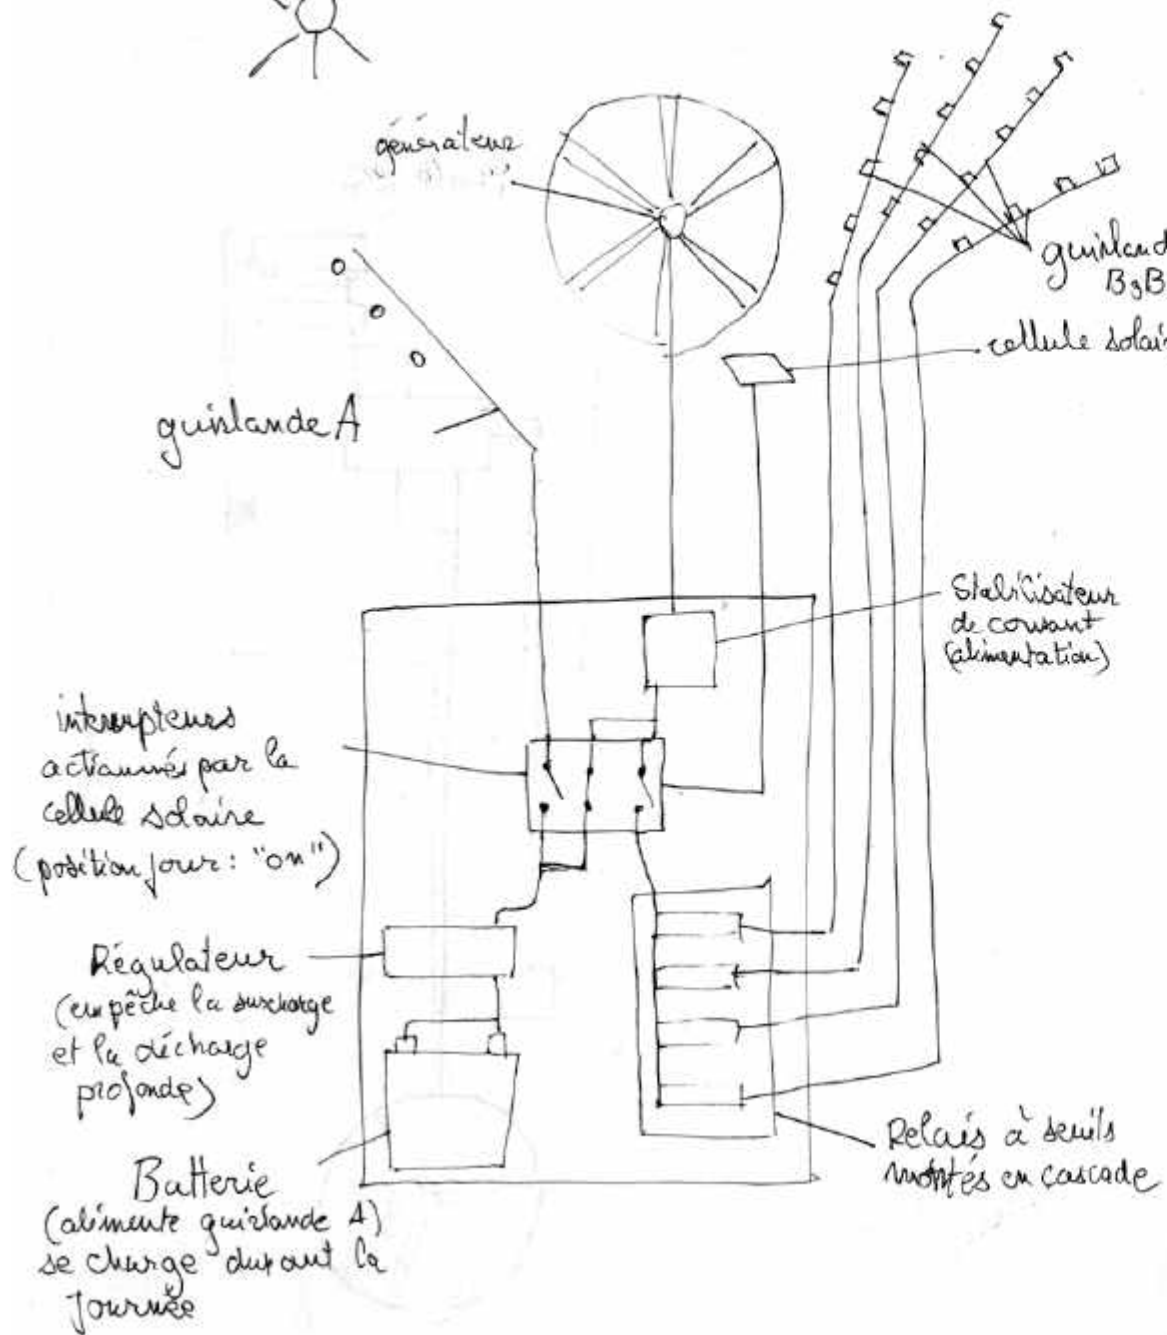 générateur
guirlande A
guirland
B3B
cellule solai
Stabilisateur
de courant
(alimentation)
interrupteurs
actionnés par la
cellule solaire
(position jour : "on")
Régulateur
(empêche la surcharge
et la décharge
profonde)
Batterie
(alimente guirlande A)
se charge durant la
journée
Relais à seuils
montés en cascade